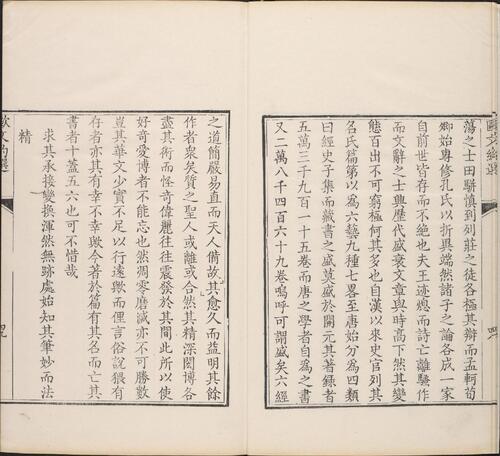 蕩之士田駢慎到列莊之徒各極其辯而孟軻荀
卿始專修孔氏以折異端然諸子之論各成一家
自前世皆存而不絶也夫王迹熄而詩亡離騷作
而文辭之士興歷代盛衰文章與時高下然其變
態百出不可窮極何其多也自漢以來史官列其
名氏篇第以為六藝九種七畧至唐始分為四類
曰經史子集而藏書之盛莫盛於開元其著錄者
五萬三千九百一十五卷而唐之學者自為之書
又二萬八千四百六十九卷嗚呼可謂盛矣六經
之道簡嚴易直而天人備故其愈久而益明其餘
作者衆矣質之聖人或離或合然其精深閎博各
盡其術而怪奇偉麗往往震發於其間此所以使
好奇愛博者不能忘也然凋零磨滅亦不可勝數
豈其華文少實不足以行遠歟而俚言俗說猥有
存者亦其有幸不幸歟今著於篇有其名而亡其
書者十蓋五六也可不惜哉
求其承接變換渾然無跡處始知其筆妙而法
精